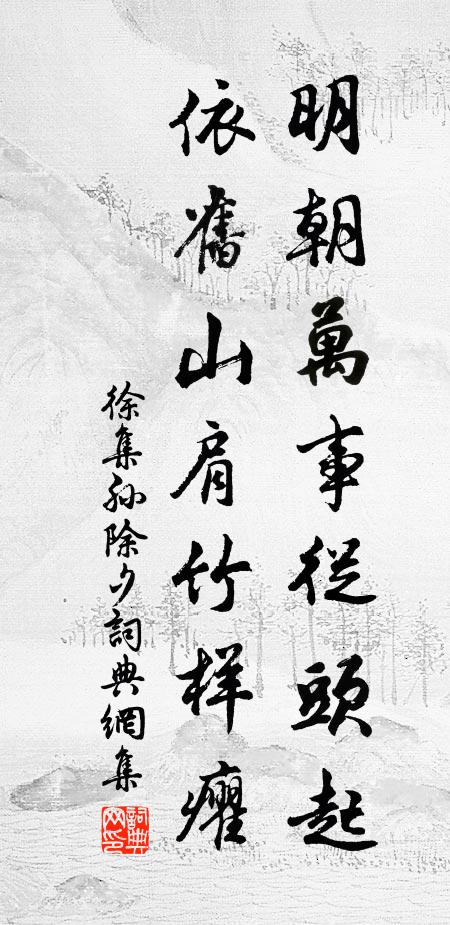 明朝萬事從頭起
依舊山肩竹样癯
徐集孙除夕詞典網集
詞典網印